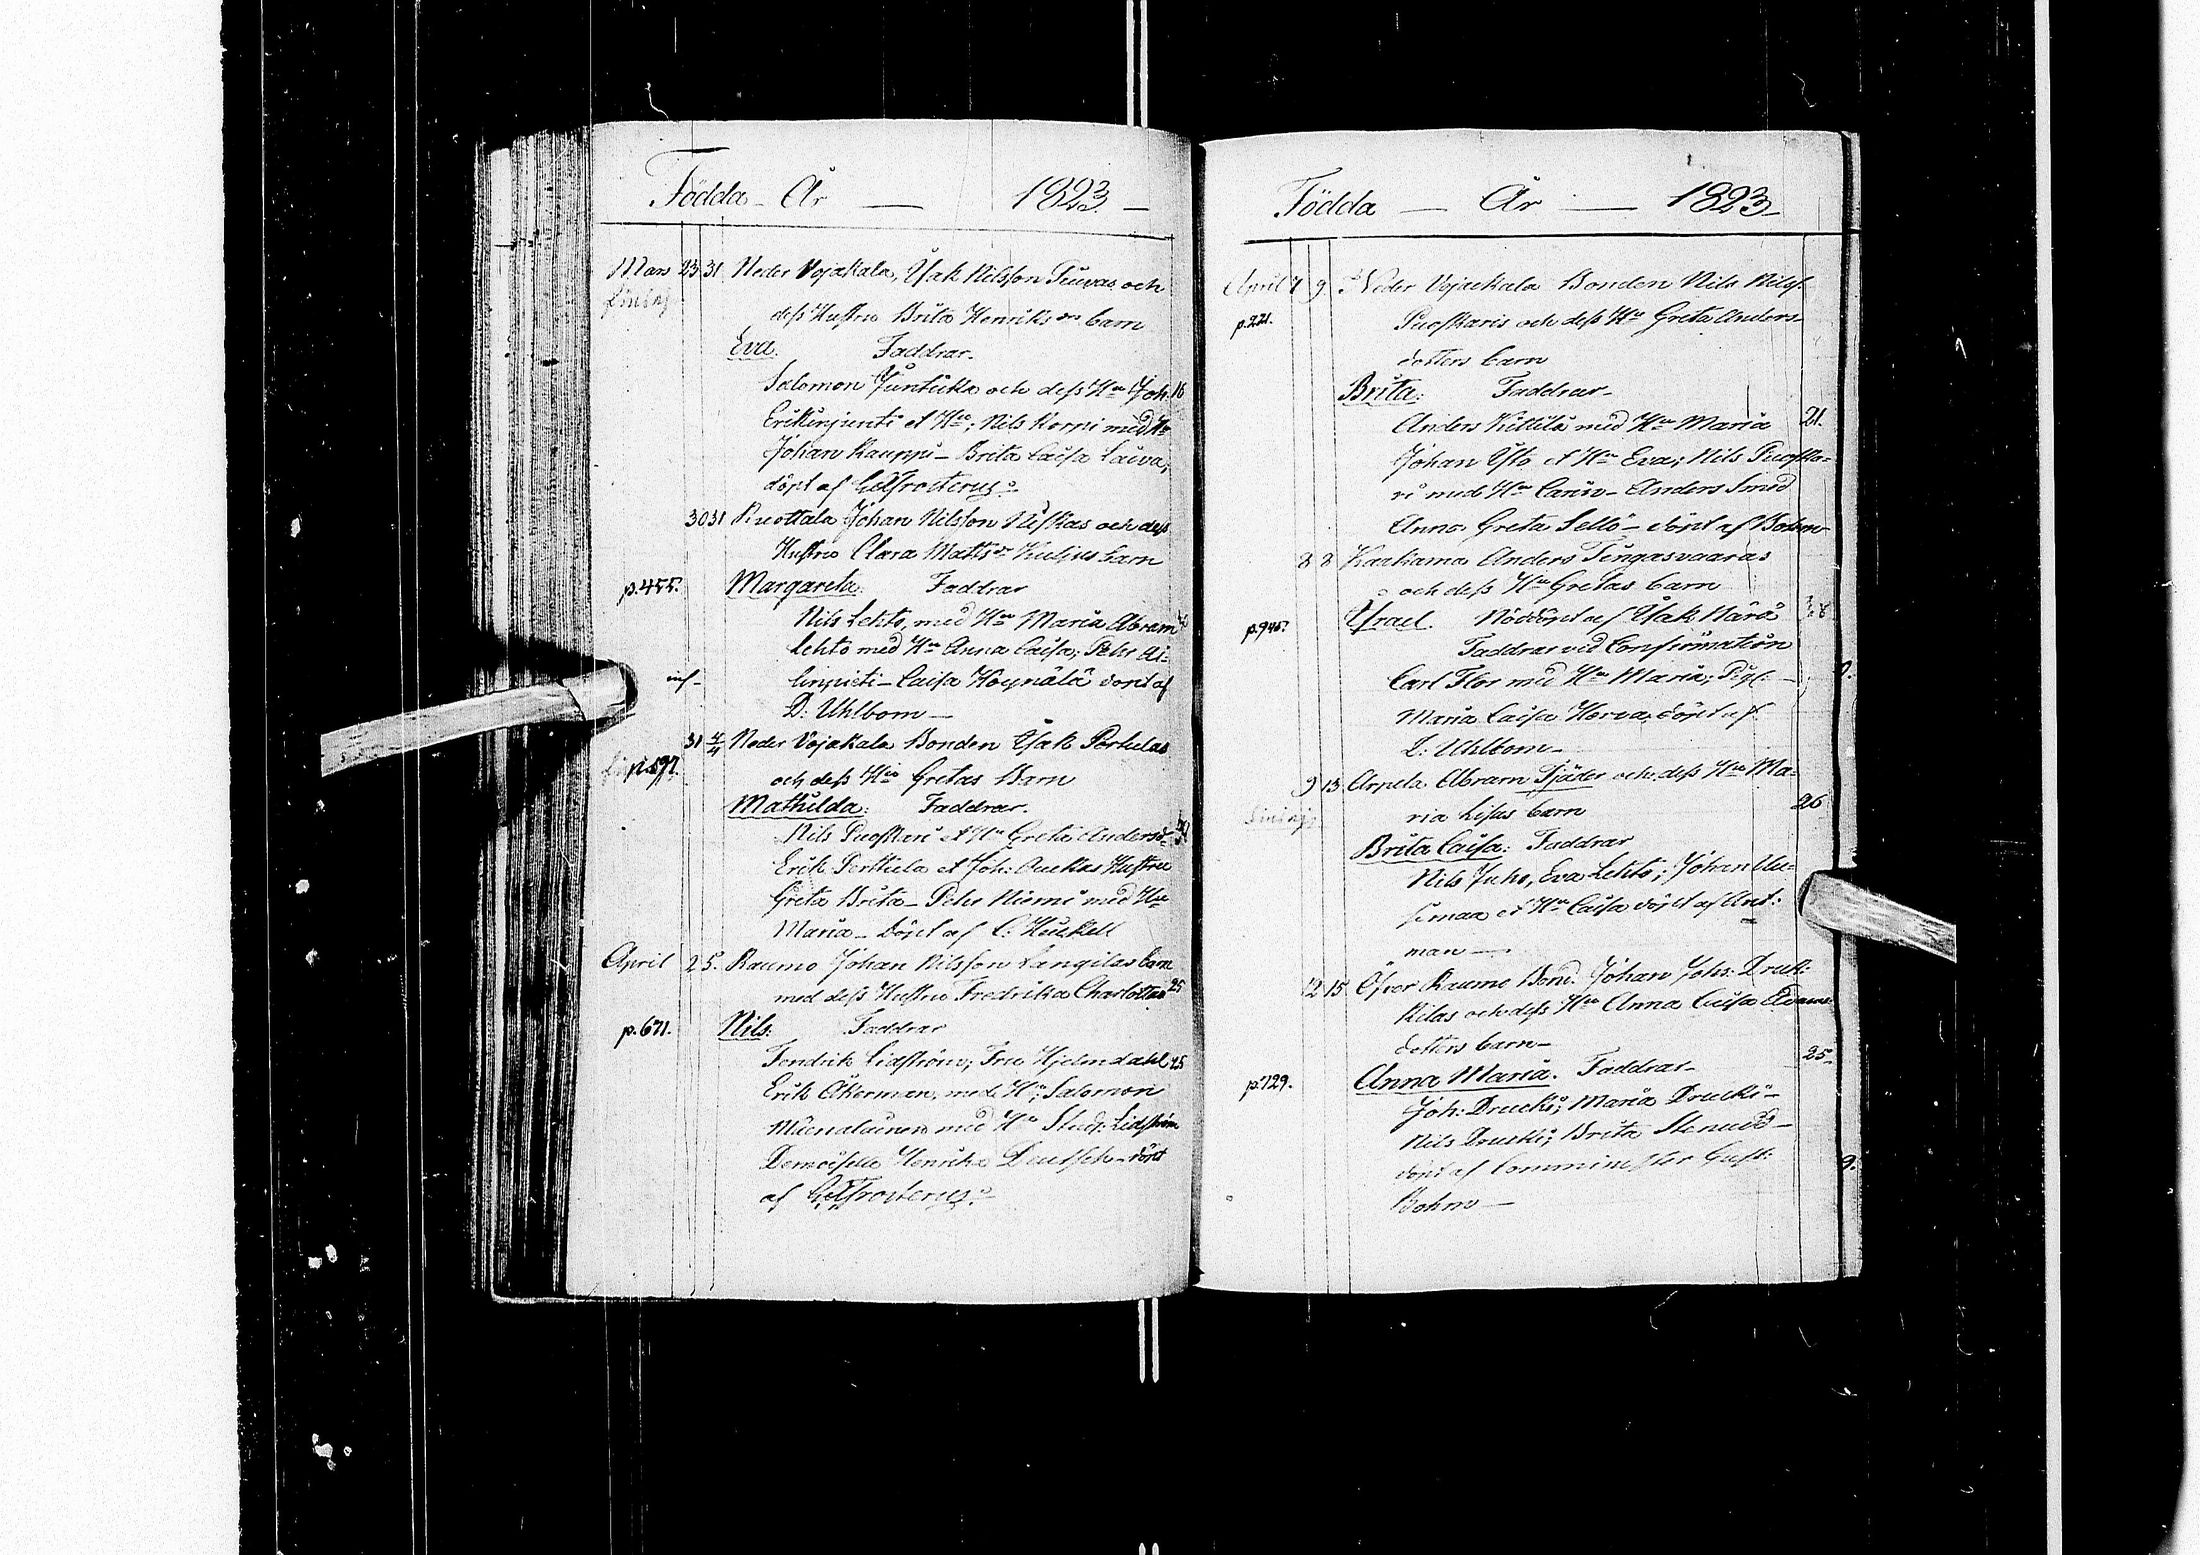 Födda - År — 1823 —
Mars 23 31 Neder Vojakala, Isak Nilsson Tiuvas och
dess Hustru Brita Henriks dr barn
Eva. Faddrar.
Salomon Juntikka och dess Hu Joh. 16
Erkkinjunti et Hu; Nils Korpi med Hu
Johan Kauppi - Brita Caisa Laiva;
döpt af
30 31 Kuottala Johan Nilsson Niskas och dess
Hustru Clara Matts dr barn
p.455. Margareta. Faddrar
Nils Lehto, med Hu Maria Abram
Lehto med Hu Anna Caisa; Pehr Al-
linpieti - Caisa Höynälä döpt af
D: Uhlbom —
31 4/4 Neder Vojakala Bonden Isak Perhelas
p.597. och dess Hus Gretas Barn
Mathilda: Faddrar.
Nils Puoskari et Hu Greta Andersd-
Erik Perttula et Joh: Hustru
Greta Brita - Pehr Niemi med Hu
Maria - döpt af C: Heickell
April 2 5. Raumo Johan Nilsson Langilas barn
med dess Hustru Fredrika Charlottas 25
p.671. Nils: Faddrar
Lidström; Fru Hjelmdahl 25
Erik Åkerman, med Hu; Salomon
med Hu Stud: Lidström
Demoiselle Henrika döpt
af
Födda — År — 1823 -
April 7 9. Neder Vojackala Bonden Nils Nilss:
p.221. Puoskaris och dess Hu Greta Anders-
dotters barn
Brita: Faddrar -
Anders Kittilä med Hu Maria 21.
Johan Ylto et Hu Eva; Nils Puoska-
ri med Hu Carin - Anders Smed
Anna Greta Sellö - döpt af Bohm
8 8 Karhama Anders Tingasvaaras
och dess Hu Gretas barn
p.945. Israel. Nöddöpt af Isak Närä
Faddrar vid Confirmation
Carl Flor med Hu Maria; Pig:
Maria Caisa Herva, döpt af
D: Uhlbom -
9 13 Arpela Abram Tjäder och dess Hu Ma-
ria Lisas barn 26
Brita Caisa: Faddrar
Nils Juho, Eva Lehto; Johan Uu-
simaa et Hu Caisa döpt af Ant:
man —
12 15 Öfver Raumo Bond. Johan Johs: Druck-
kilas och dess Hu Anna Caisa Adams
dotters barn - 25
p.729. Anna Maria. Faddrar -
Joh: Drucki; Maria Drucki -
Nils Drucki; Brita Stenudd -
döpt af Comminister Gust:
Bohm —